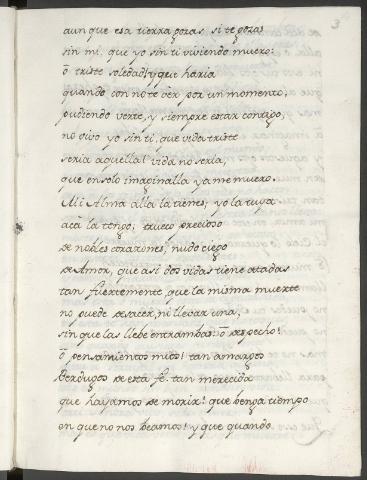 3
aunque esa tierra gozas, si te gozas
sin mi, que yo sin ti viviendo muero:
ò triste soledad! y que haria
quando con no te vèr por un momento,
pudiendo verte, y siempre estar contigo,
no vivo yo sin ti, que vida triste
seria aquella! vida no seria,
que en solo imaginalla ya me muero.
Mi Alma allà la tienes; yo la tuya
acà la tengo; trueco precioso
de nobles corazones, nudo ciego
de Amor, que asi dos vidas tiene atadas
tan fuertemente que la misma muerte
no puede desacer, ni llevar una,
sin que las llebe entrambas: ò despecho!
ò pensamientos mios! tan amargos
Berdugos de esta fe tan merecida
que hayamos de morir! que benga tiempo
en que no nos beamos! y que quando